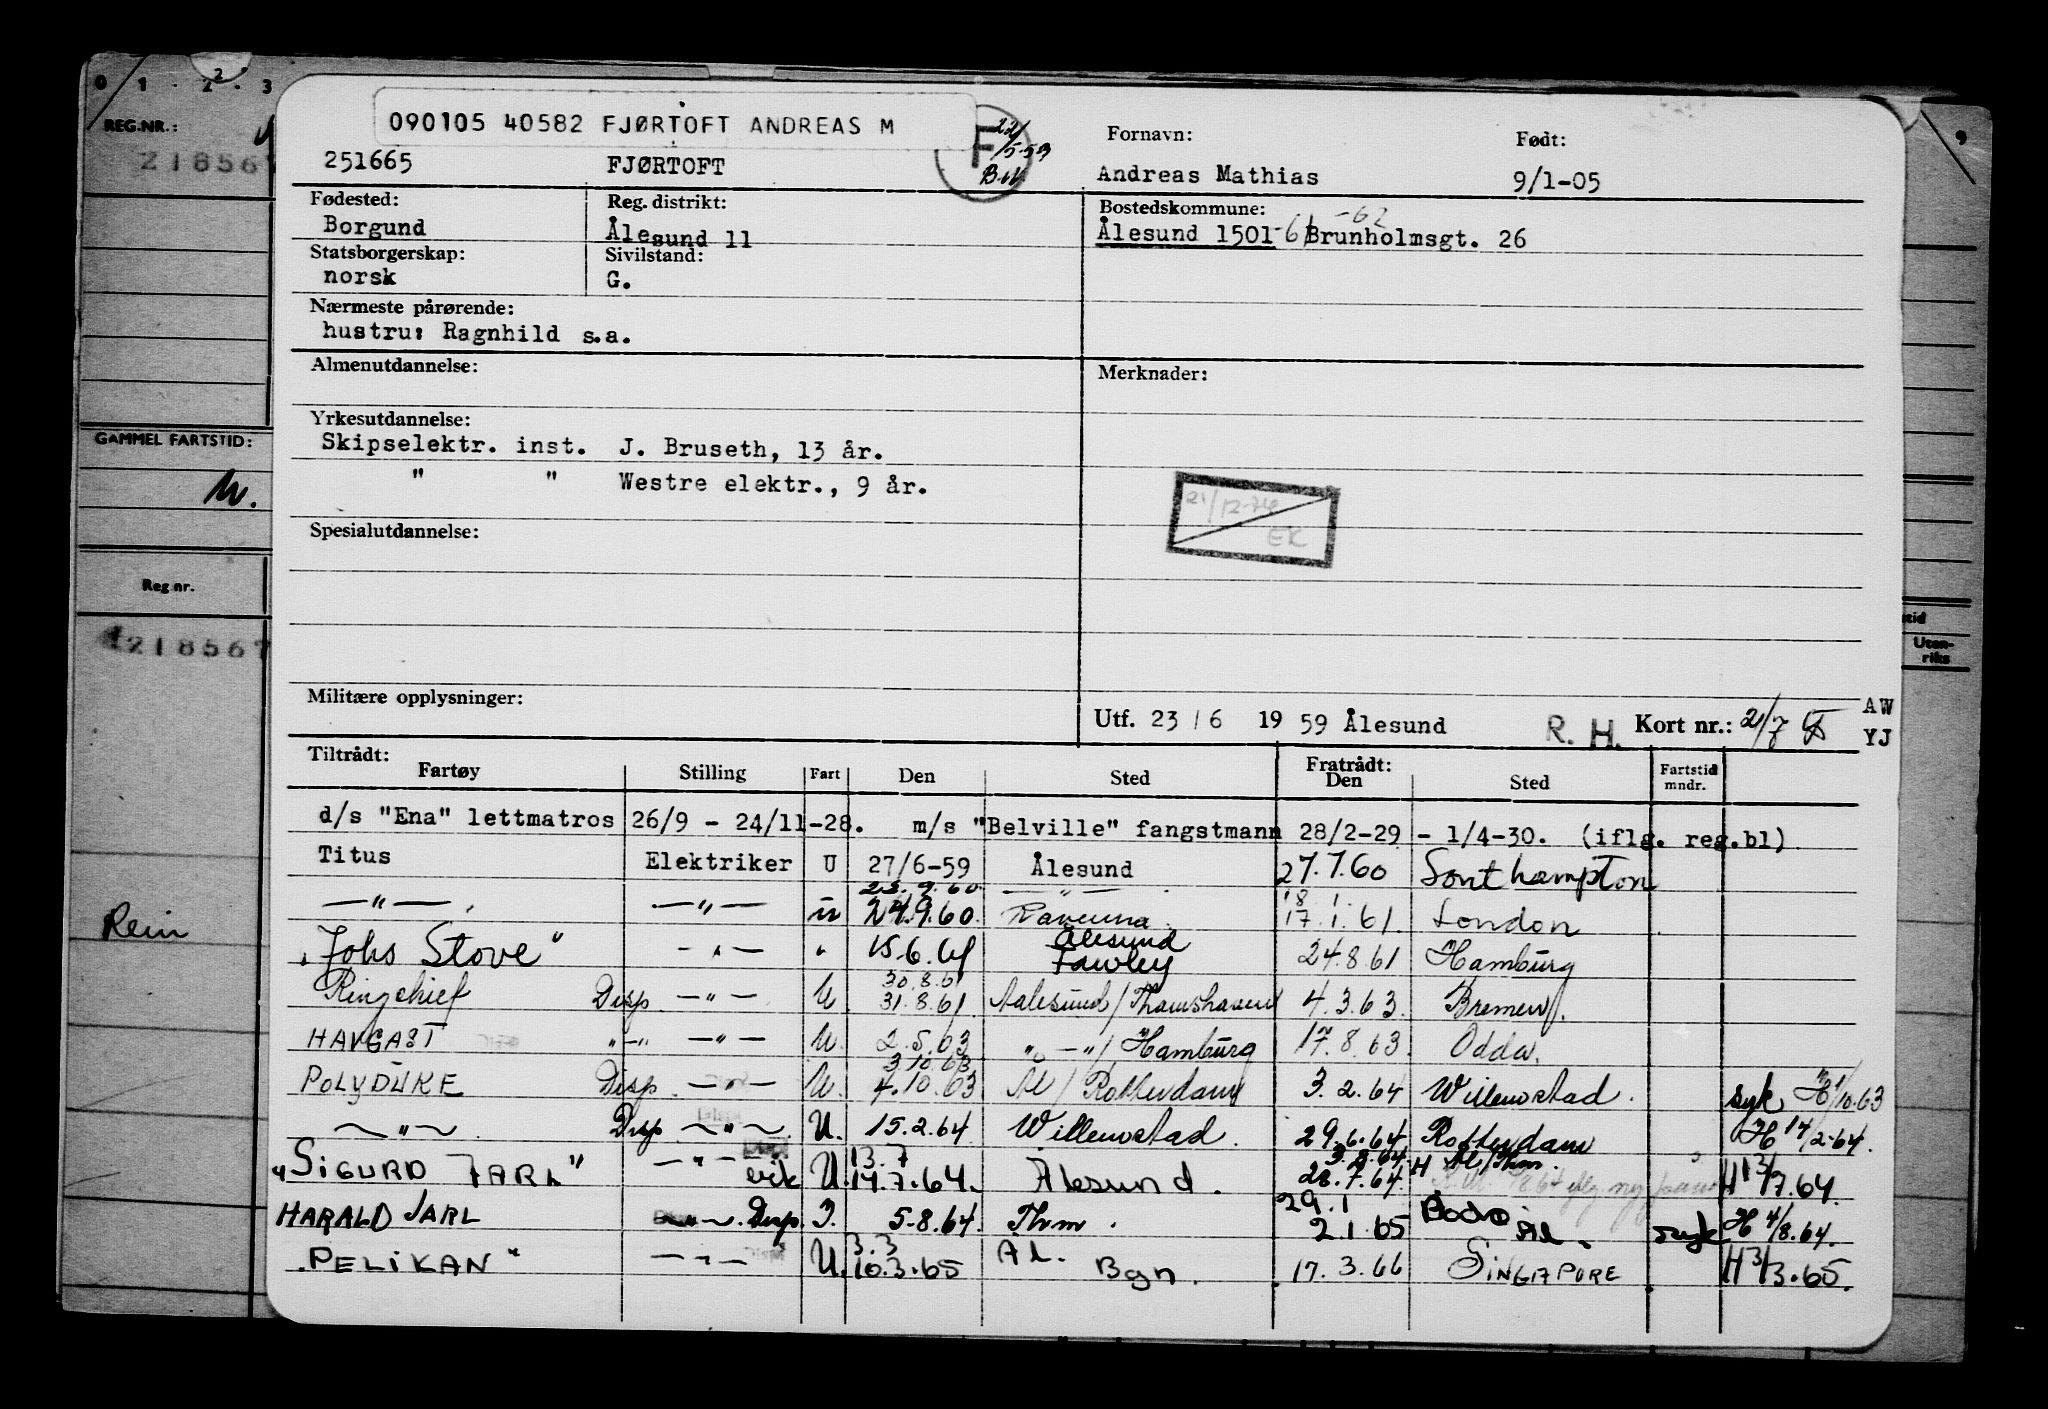 0 1 2 3
REG.NR.:
218567
090105 40582 FJØRTOFT ANDREAS M
251665 FJØRTOFT
F 22/5-59
Fornavn: Født:
Andreas Mathias 9/1-05
Fødested: Reg. distrikt: Bostedskommune:
Borgund Ålesund 11 Ålesund 1501 -61 -62 Brunholmsgt. 26
Statsborgerskap: Sivilstand:
norsk G.
Nærmeste pårørende:
hustru: Ragnhild s.a.
Almenutdannelse: Merknader:
Yrkesutdannelse:
Skipselektr. inst. J. Bruseth, 13 år.
" " Westre elektr., 9 år.
21/12-74
EK
Spesialutdannelse:
GAMMEL FARTSTID:
Reg nr.
218567
Utenriks
Militære opplysninger:
Utf. 23/6 1959 Ålesund R. H. Kort nr.: 2/7
AW
YJ
Tiltrådt: Fratrådt:
Fartøy Stilling Fart Den Sted Den Sted Fartstid mndr.
d/s "Ena" lettmatros 26/9 - 24/11-28. m/s "Belville" fangstmann 28/2-29 - 1/4-30. (iflg. reg.bl)
Titus Elektriker U 27/6-59 Ålesund 27.7.60 Southampton
—"— —"— U 23.9.60 24.9.60 —"— Ravenna 18.1. 17.1.61 London
Rein
"Johs Stove" -"- " 15.6.61 Ålesund Fawley 24.8.61 Hamburg
Ringchief Disp —"— U. 30.8.61 31.8.61 Aalesund/Thamshavn 4.3.63. Bremen.
HAVGAST "-" —"— U. 2.5.63 "—"/Hamburg 17.8.63 Odda.
POLYDUKE Disp. —"— U. 3.10.63 4.10.63 Ål/Rotterdam 3.2.64 Willemstad. syk H 1/10.63
—"— Disp —"— U. 15.2.64 Willemstad. 29.6.64 Rotterdam H 14/2-64.
"SIGURD JARL" —"— vik U. 13.7 14.7.64. Ålesund. 3.8.64. 28.7.64. H Ål/Thm. H 13/7.64.
HARALD JARL —"— Disp. I. 5.8.64. Thm. 29.1 2.1.65 Bodø Ål. syk H 4/8.64.
"PELIKAN" —"— U. 3.3 10.3.65 Ål. Bgn. 17.3.66 SINGAPORE H 3/3.65.